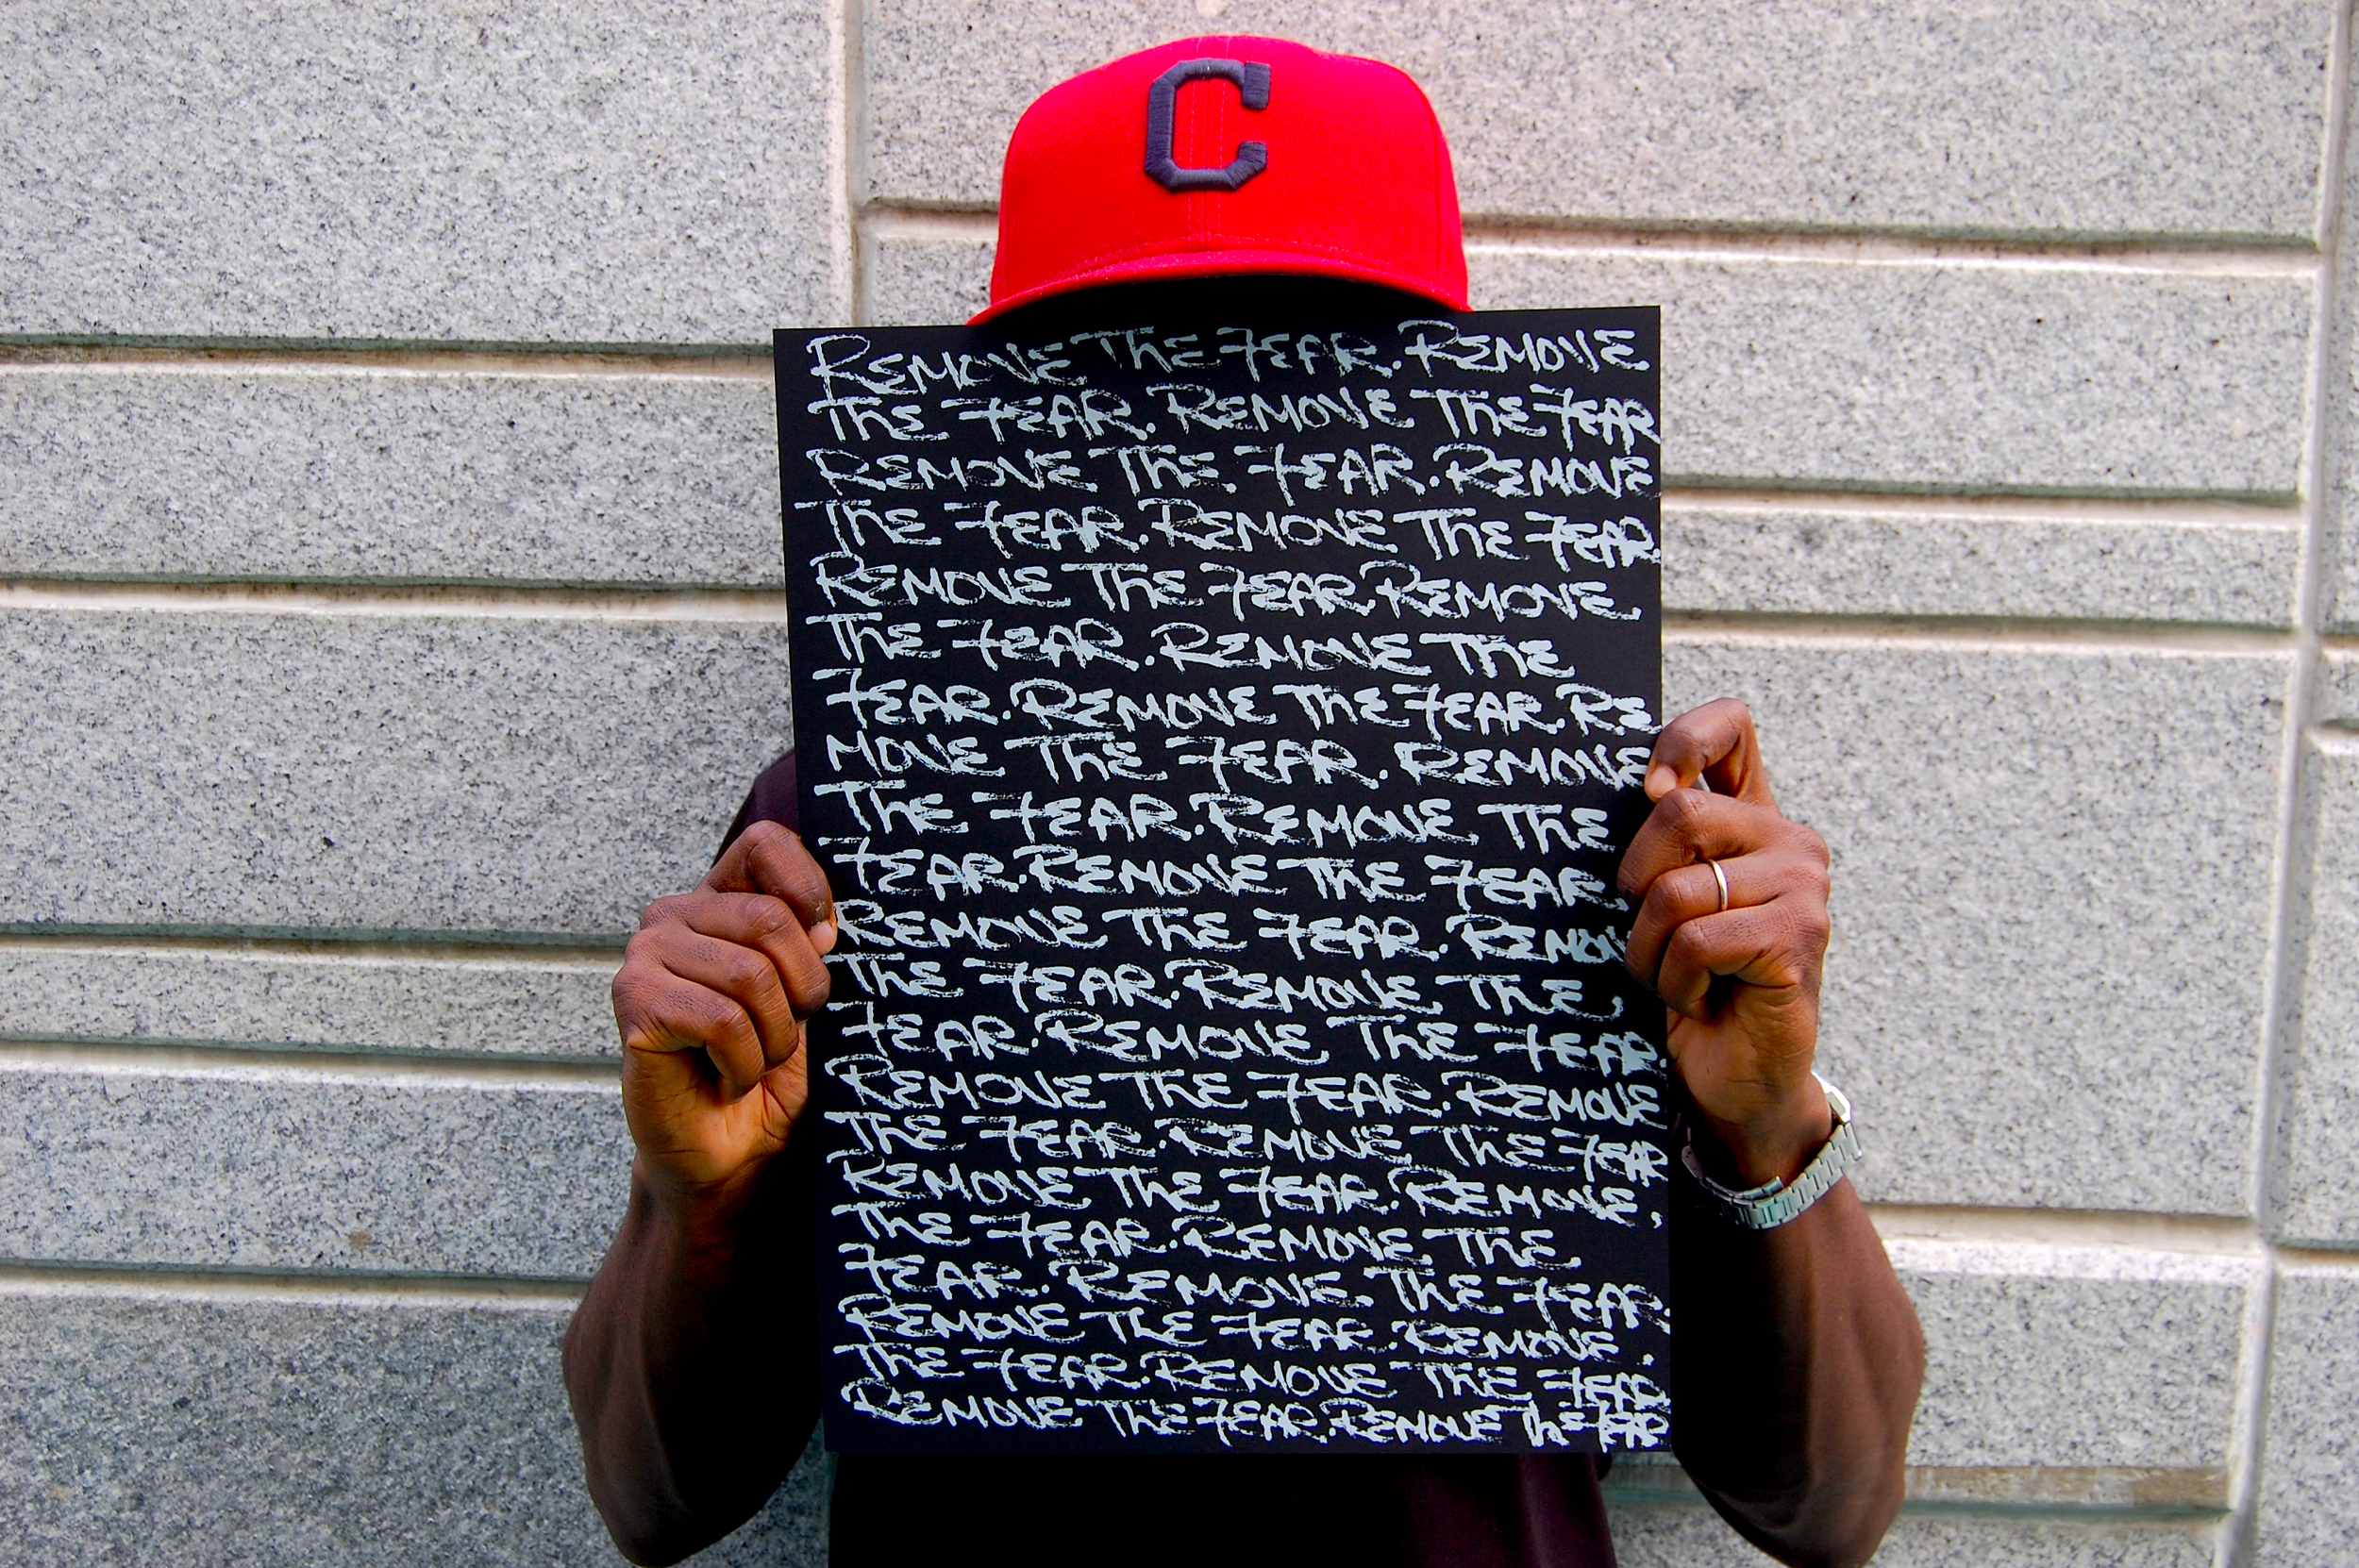 C
REMOVE THE FEAR. REMOVE
THE FEAR. REMOVE THE FEAR
REMOVE THE FEAR. REMOVE
THE FEAR. REMOVE THE FEAR.
REMOVE THE FEAR. REMOVE
THE FEAR. REMOVE THE
FEAR. REMOVE THE FEAR. RE
MOVE THE FEAR. REMOVE
THE FEAR. REMOVE THE
FEAR. REMOVE THE FEAR.
REMOVE THE FEAR. REMOVE
THE FEAR. REMOVE THE
FEAR. REMOVE THE FEAR.
REMOVE THE FEAR. REMOVE
THE FEAR. REMOVE THE FEAR
REMOVE THE FEAR. REMOVE.
THE FEAR. REMOVE THE
FEAR. REMOVE. THE FEAR.
REMOVE THE FEAR. REMOVE.
THE FEAR. REMOVE THE FEAR.
REMOVE THE FEAR. REMOVE THE FEAR